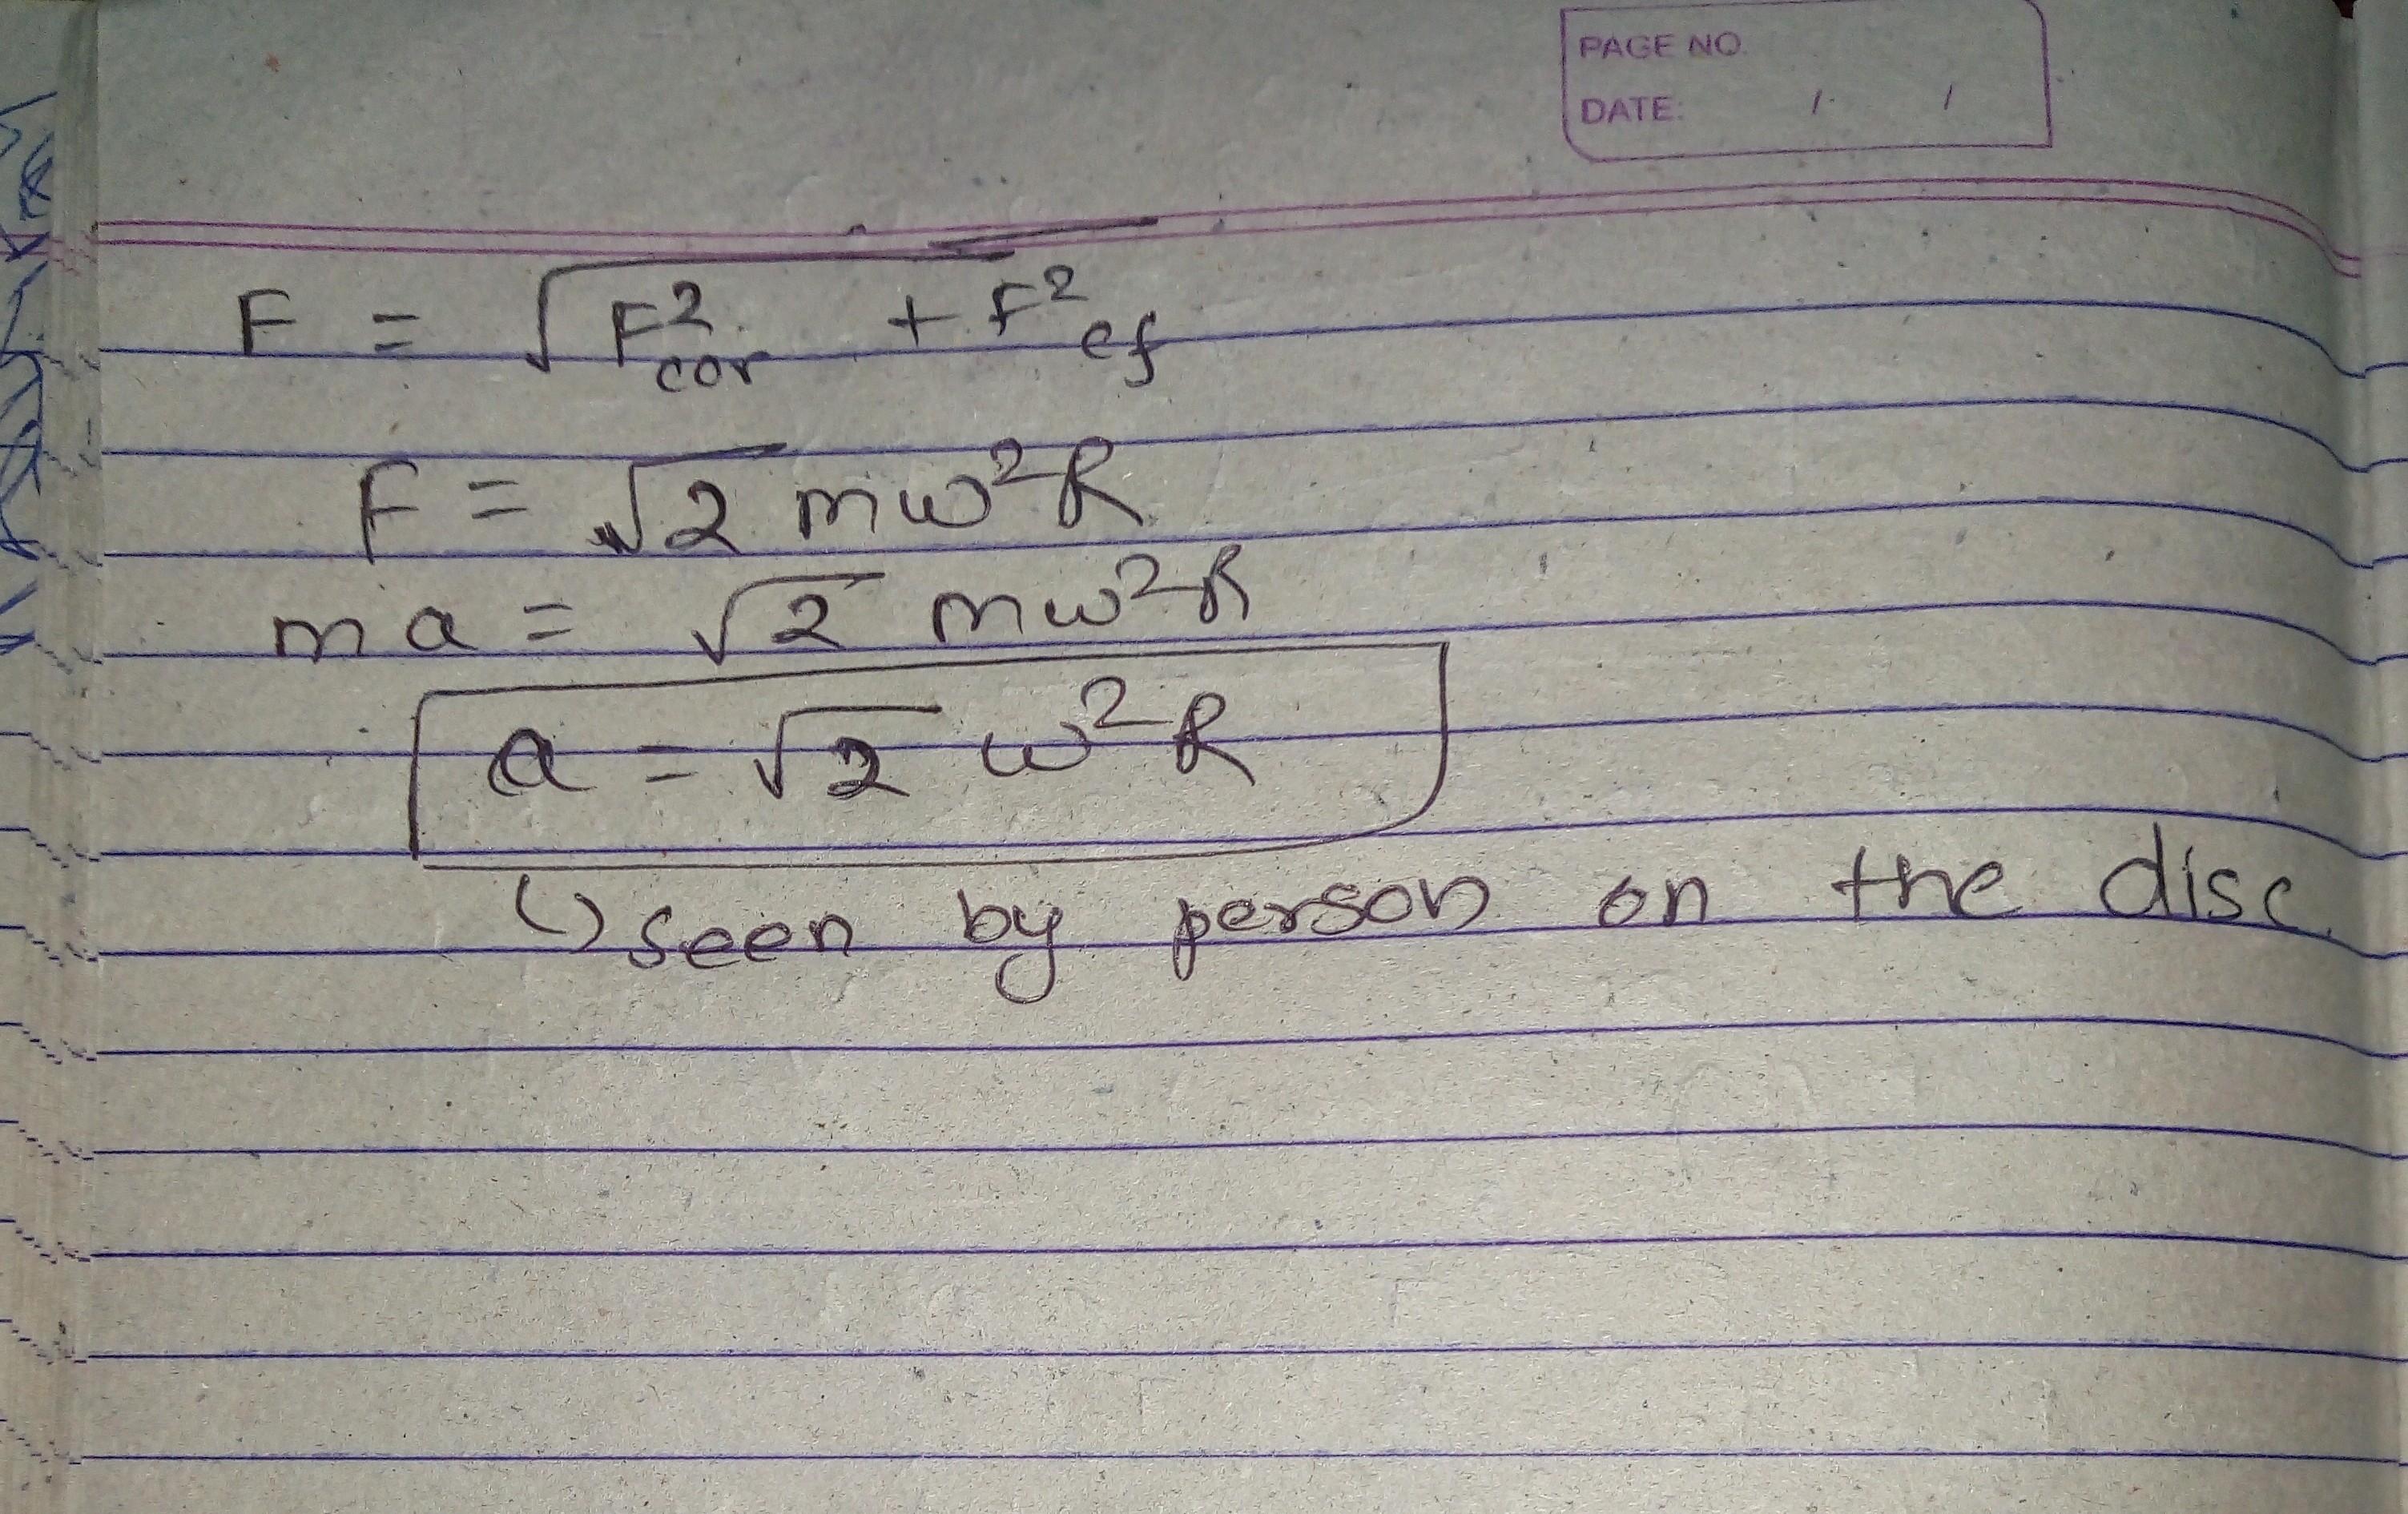 PAGE NO.
DATE: / /
F = √(F²cor + F²cf)
F = √2 mω²R
ma = √2 mω²R
a = √2 ω²R
↳ seen by person on the disc